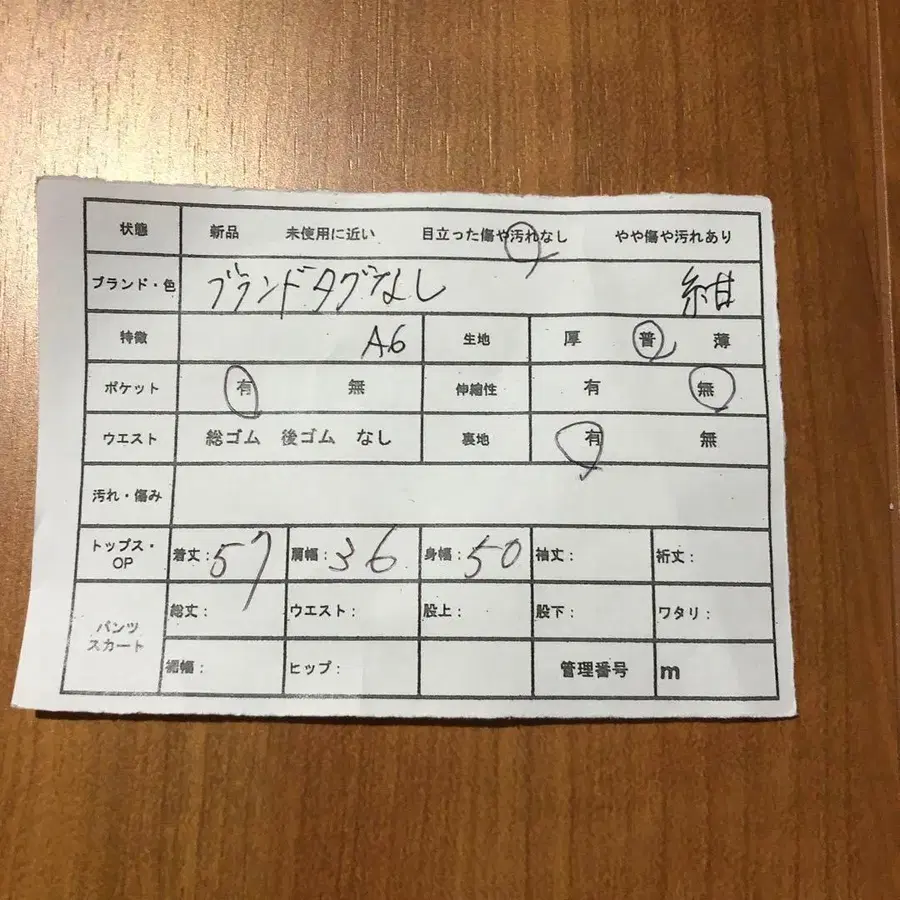 状態 新品 未使用に近い 目立った傷や汚れなし やや傷や汚れあり
ブランド・色 ブランドタグなし 紺
特徴 A6 生地 厚 普 薄
ポケット 有 無 伸縮性 有 無
ウエスト 総ゴム 後ゴム なし 裏地 有 無
汚れ・傷み
トップス・OP 着丈：57 肩幅：36 身幅：50 袖丈： 裄丈：
パンツスカート 総丈： ウエスト： 股上： 股下： ワタリ：
裾幅： ヒップ： 管理番号 m